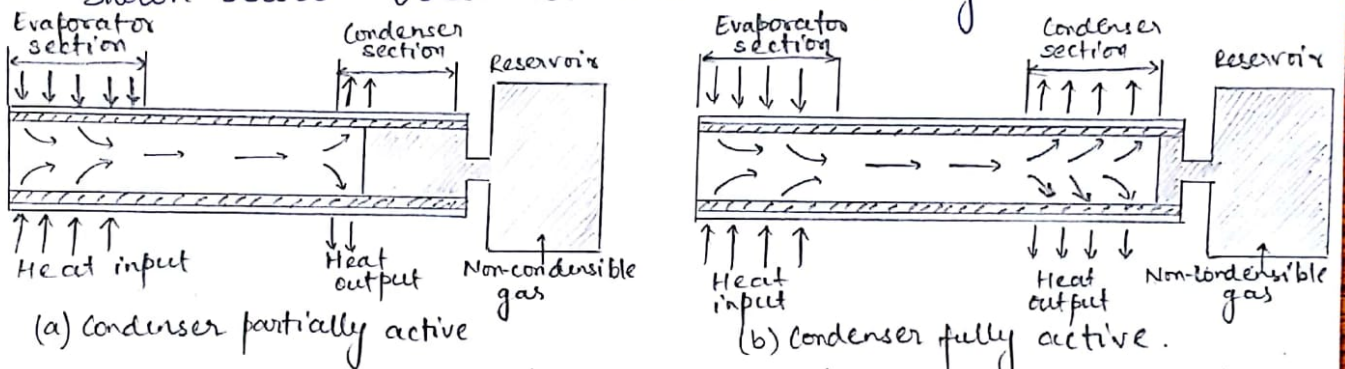 Evaporator
section
Condenser
section
Reservoir
Heat input
Heat
output
Non-condensible
gas
(a) Condenser partially active
Evaporator
section
Condenser
section
Reservoir
Heat
input
Heat
output
Non-condensible
gas
(b) Condenser fully active.